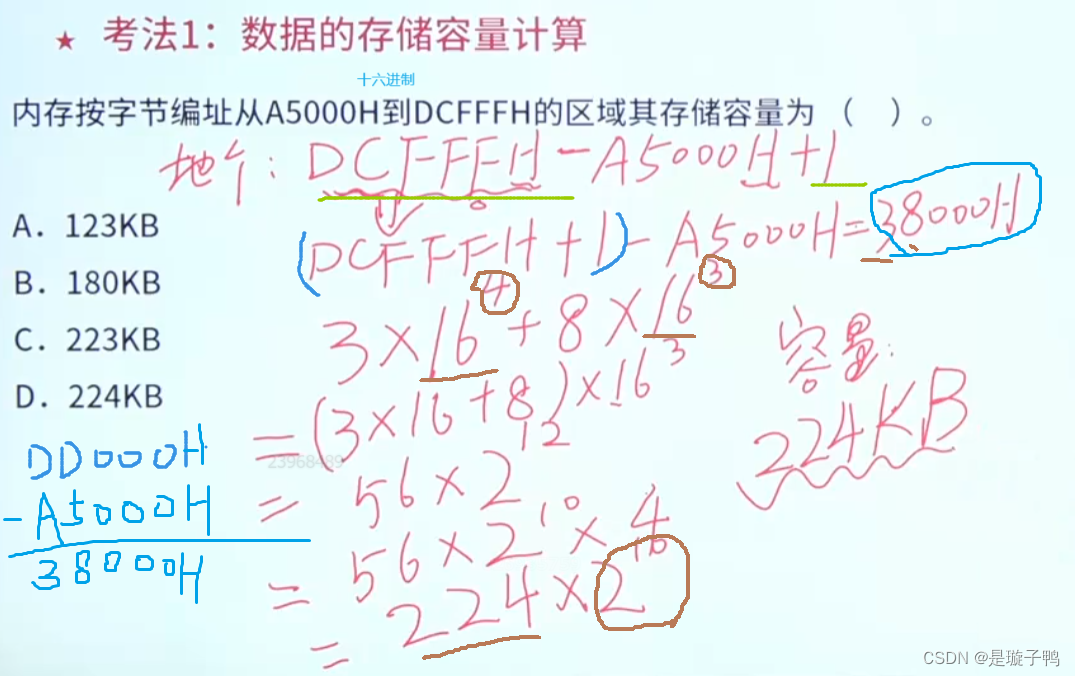 ★ 考法1：数据的存储容量计算
十六进制
内存按字节编址从A5000H到DCFFFH的区域其存储容量为（ ）。
地个：DCFFFH-A5000H+1
(DCFFFH+1)-A5000H=38000H
A. 123KB
B. 180KB
C. 223KB
D. 224KB
3×16⁴+8×16³
=(3×16+8)×16³
=56×2¹²
=56×2¹⁰×4
=224×2¹⁰
容量：
224KB
DD000H
-A5000H
38000H
23968489
CSDN @是璇子鸭